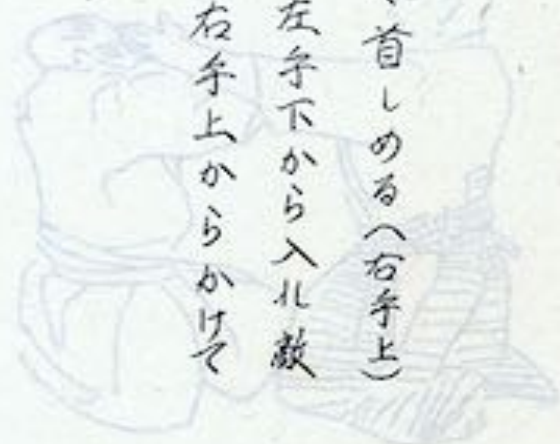 首しめる（右手上）
左手下から入れ敵
右手上からかけて